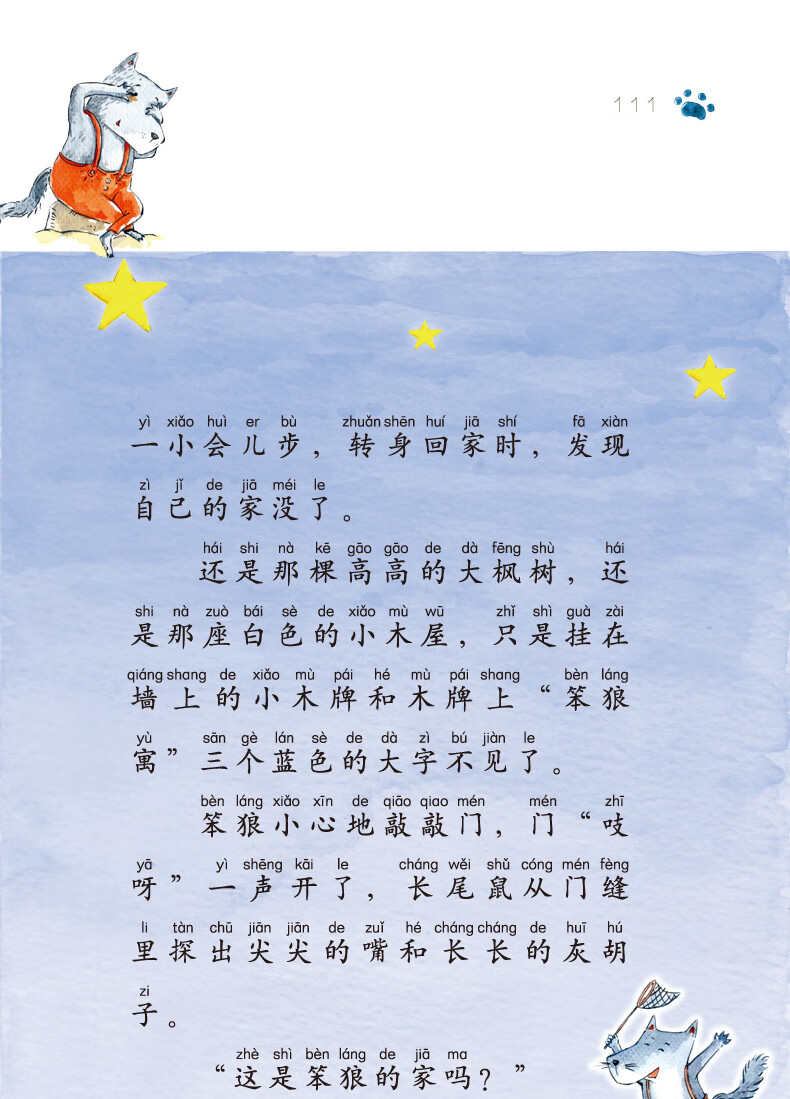 111
yì xiǎo huì er bù zhuǎn shēn huí jiā shí fā xiàn
一小会儿步，转身回家时，发现
zì jǐ de jiā méi le
自己的家没了。
hái shi nà kē gāo gāo de dà fēng shù hái
还是那棵高高的大枫树，还
shi nà zuò bái sè de xiǎo mù wū zhǐ shì guà zài
是那座白色的小木屋，只是挂在
qiáng shang de xiǎo mù pái hé mù pái shang bèn láng
墙上的小木牌和木牌上“笨狼
yù sān gè lán sè de dà zì bú jiàn le
寓”三个蓝色的大字不见了。
bèn láng xiǎo xīn de qiāo qiao mén mén zhī
笨狼小心地敲敲门，门“吱
yā yì shēng kāi le cháng wěi shǔ cóng mén fèng
呀”一声开了，长尾鼠从门缝
li tàn chū jiān jiān de zuǐ hé cháng cháng de huī hú
里探出尖尖的嘴和长长的灰胡
zi
子。
zhè shì bèn láng de jiā ma
“这是笨狼的家吗？”